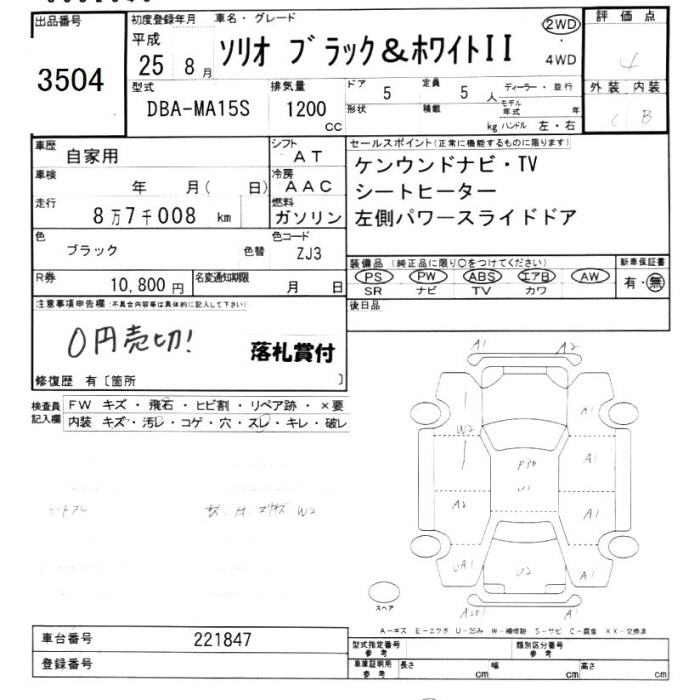 出品番号
3504
初度登録年月
平成
25 8 月
車名・グレード
ソリオ ブラック&ホワイトII
2WD
・
4WD
評価点
4
外装 内装
C B
型式
DBA-MA15S
排気量
1200
CC
ドア 5
定員 5 人
形状
積載 kg
ディーラー・並行
モデル年式 年
ハンドル 左・右
車歴
自家用
シフト
AT
車検
年 月( 日)
冷房
AAC
走行
8万7千008 km
燃料
ガソリン
色
ブラック
色替
色コード
ZJ3
R券
10,800円
名変通知期限
月 日
セールスポイント(正常に機能するものに限ります)
ケンウンドナビ・TV
シートヒーター
左側パワースライドドア
装備品(純正品に限り○をつけてください)
PS PW ABS エアB AW
SR ナビ TV カワ
新車保証書
有・無
後日品
注意事項申告欄(不具合内容等は具体的に記入して下さい)
0円売切!
落札賞付
修復歴 有〔箇所 〕
検査員記入欄
FW キズ・飛石・ヒビ割・リペア跡・×要
内装 キズ・汚レ・コゲ・穴・スレ・キレ・破レ
A1 A2
A1
W2
A1
U1
A2
A1
UA1
U2
A1
A1
スペア
A-キズ E-エクボ U-凹み W-補修跡 S-サビ C-腐食 XX-交換済
車台番号
221847
登録番号
型式指定番号
参考
類別区分番号
参考
車庫証明用
参考
長さ cm
幅 cm
高さ cm